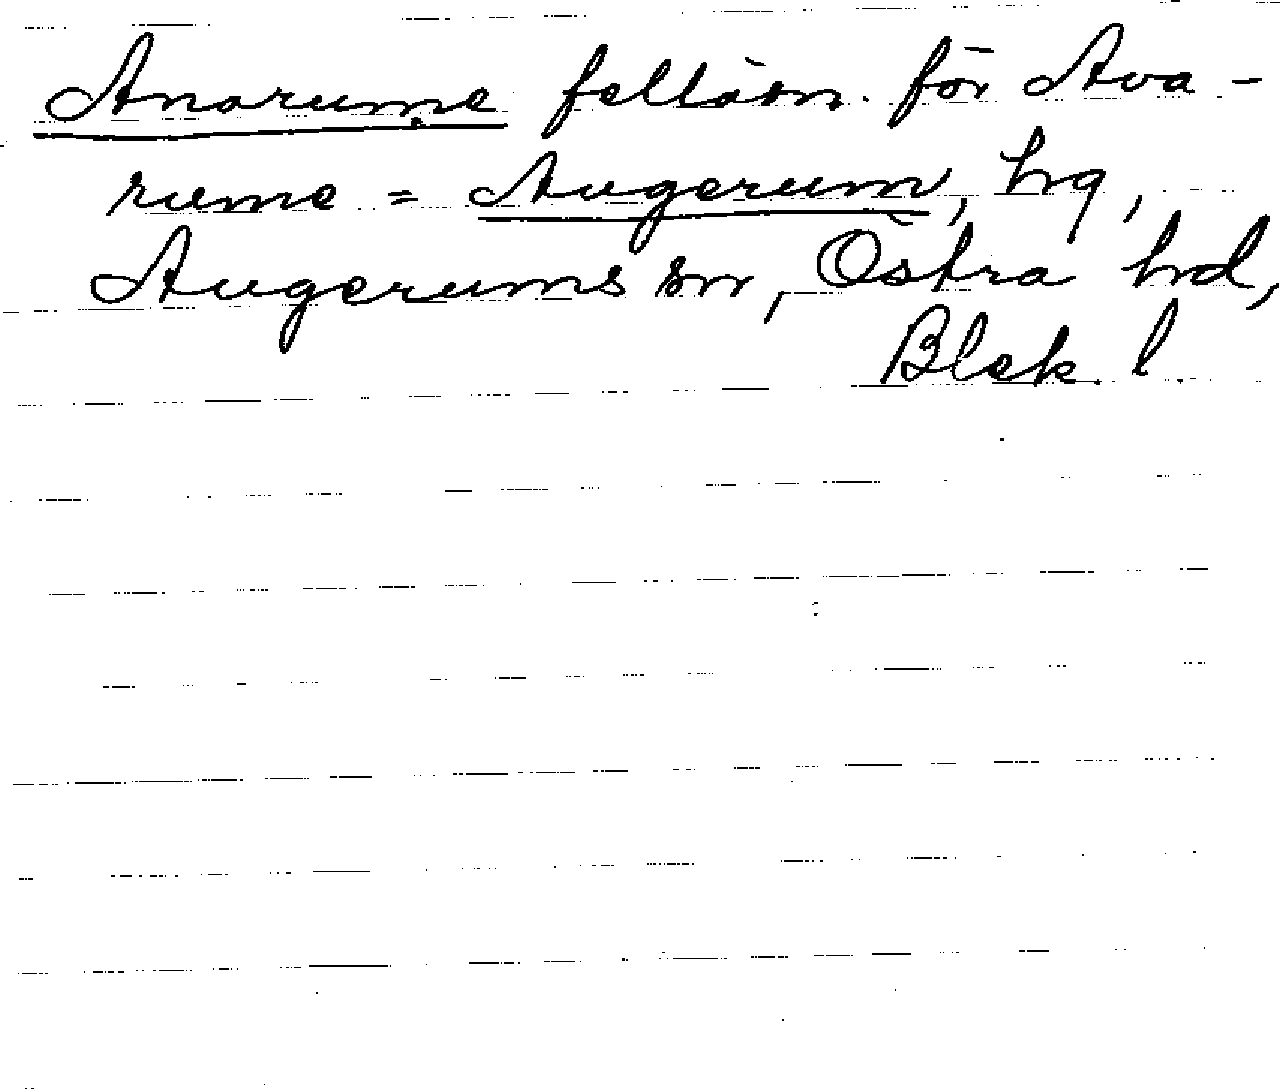 Anarume felläsn. för Ava-
rume = Augerum, hg,
Augerums sn, Östra hd,
Blek. l.